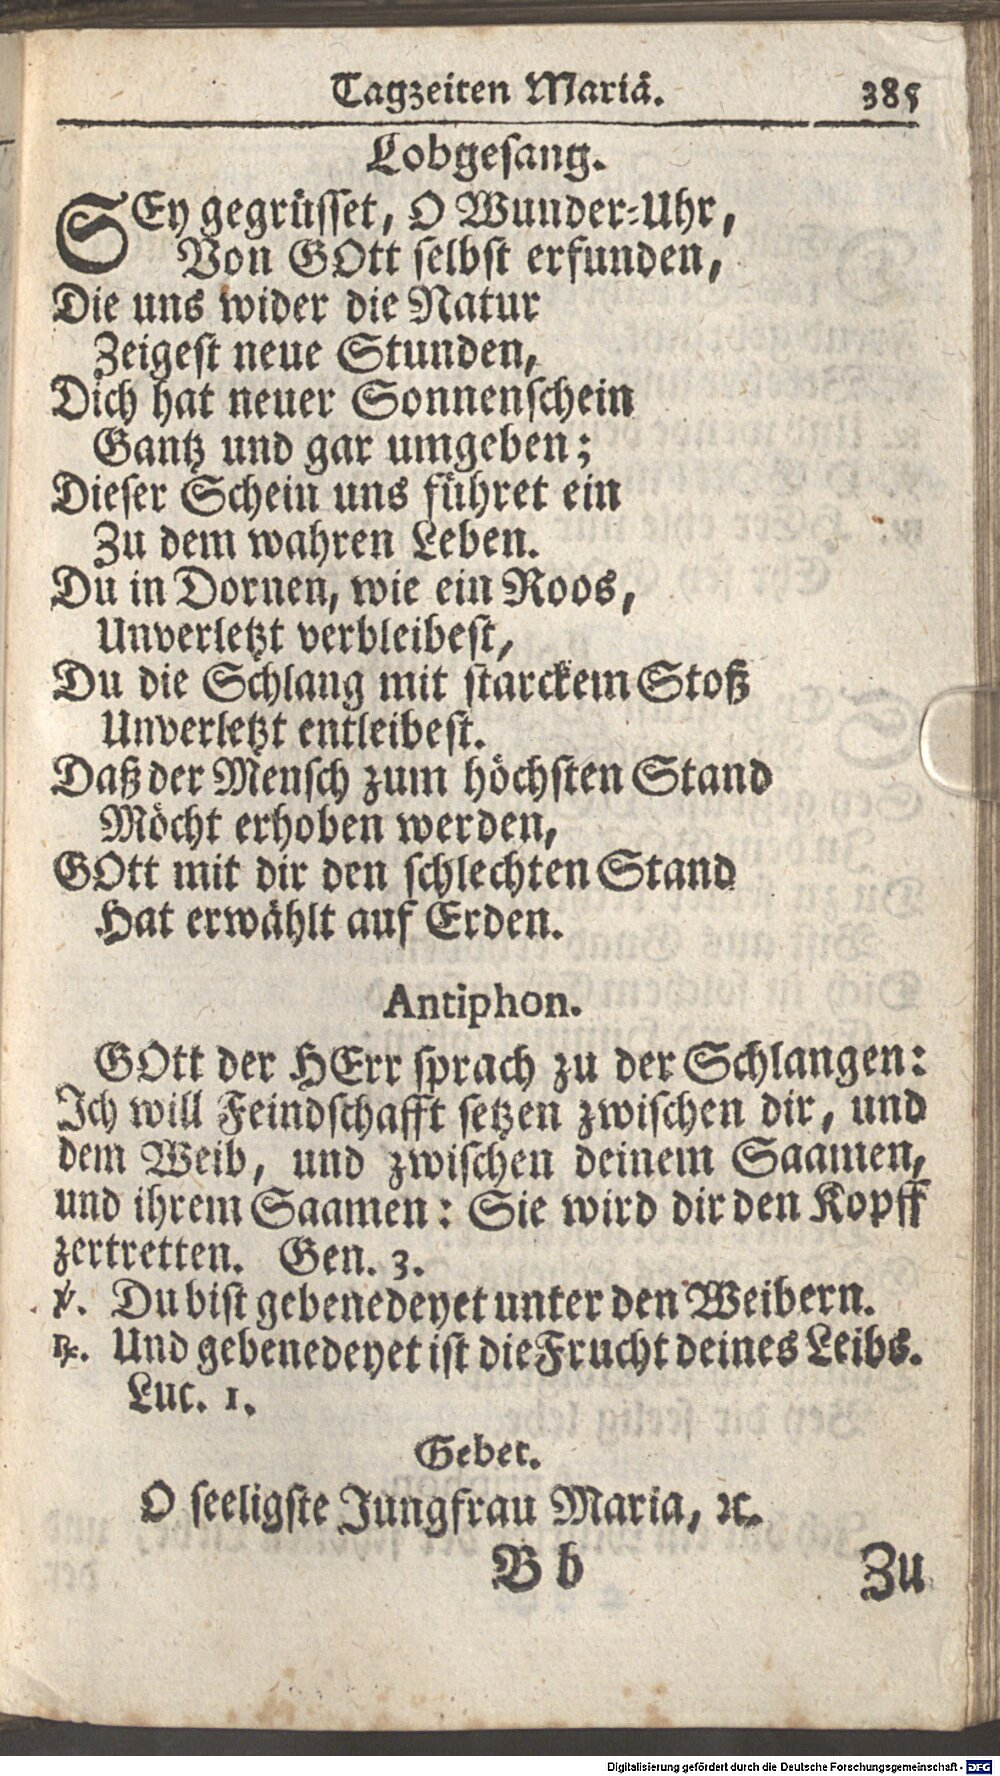 Tagzeiten Mariä. 385
Lobgesang.
SEy gegrüsset, O Wunder-Uhr,
Von GOtt selbst erfunden,
Die uns wider die Natur
Zeigest neue Stunden,
Dich hat neuer Sonnenschein
Gantz und gar umgeben;
Dieser Schein uns führet ein
Zu dem wahren Leben.
Du in Dornen, wie ein Roos,
Unverletzt verbleibest,
Du die Schlang mit starckem Stoß
Unverletzt entleibest.
Daß der Mensch zum höchsten Stand
Möcht erhoben werden,
GOtt mit dir den schlechten Stand
Hat erwählt auf Erden.
Antiphon.
GOtt der HErr sprach zu der Schlangen:
Ich will Feindschafft setzen zwischen dir, und
dem Weib, und zwischen deinem Saamen,
und ihrem Saamen: Sie wird dir den Kopff
zertretten. Gen. 3.
℣. Du bist gebenedeyet unter den Weibern.
℞. Und gebenedeyet ist die Frucht deines Leibs.
Luc. 1.
Gebet.
O seeligste Jungfrau Maria, ꝛc.
B b Zu
Digitalisierung gefördert durch die Deutsche Forschungsgemeinschaft - DFG